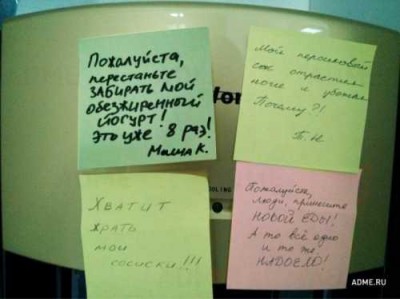 Пожалуйста,
перестаньте
ЗАБИРАТЬ МОЙ
обезжиренный
йогурт!
Это уже 8 раз!
Маша К.
Мой персиковый
сок отрастил
ноги и убежал.
Почему?!
П. Н
for
ХВАТИТ
ЖРАТЬ
МОИ
СОСИСКИ!!!
OLING
Пожалуйста,
люди, принесите
НОВОЙ ЕДЫ!
А то всё одно
и то же
НАДОЕЛО!
ADME.RU